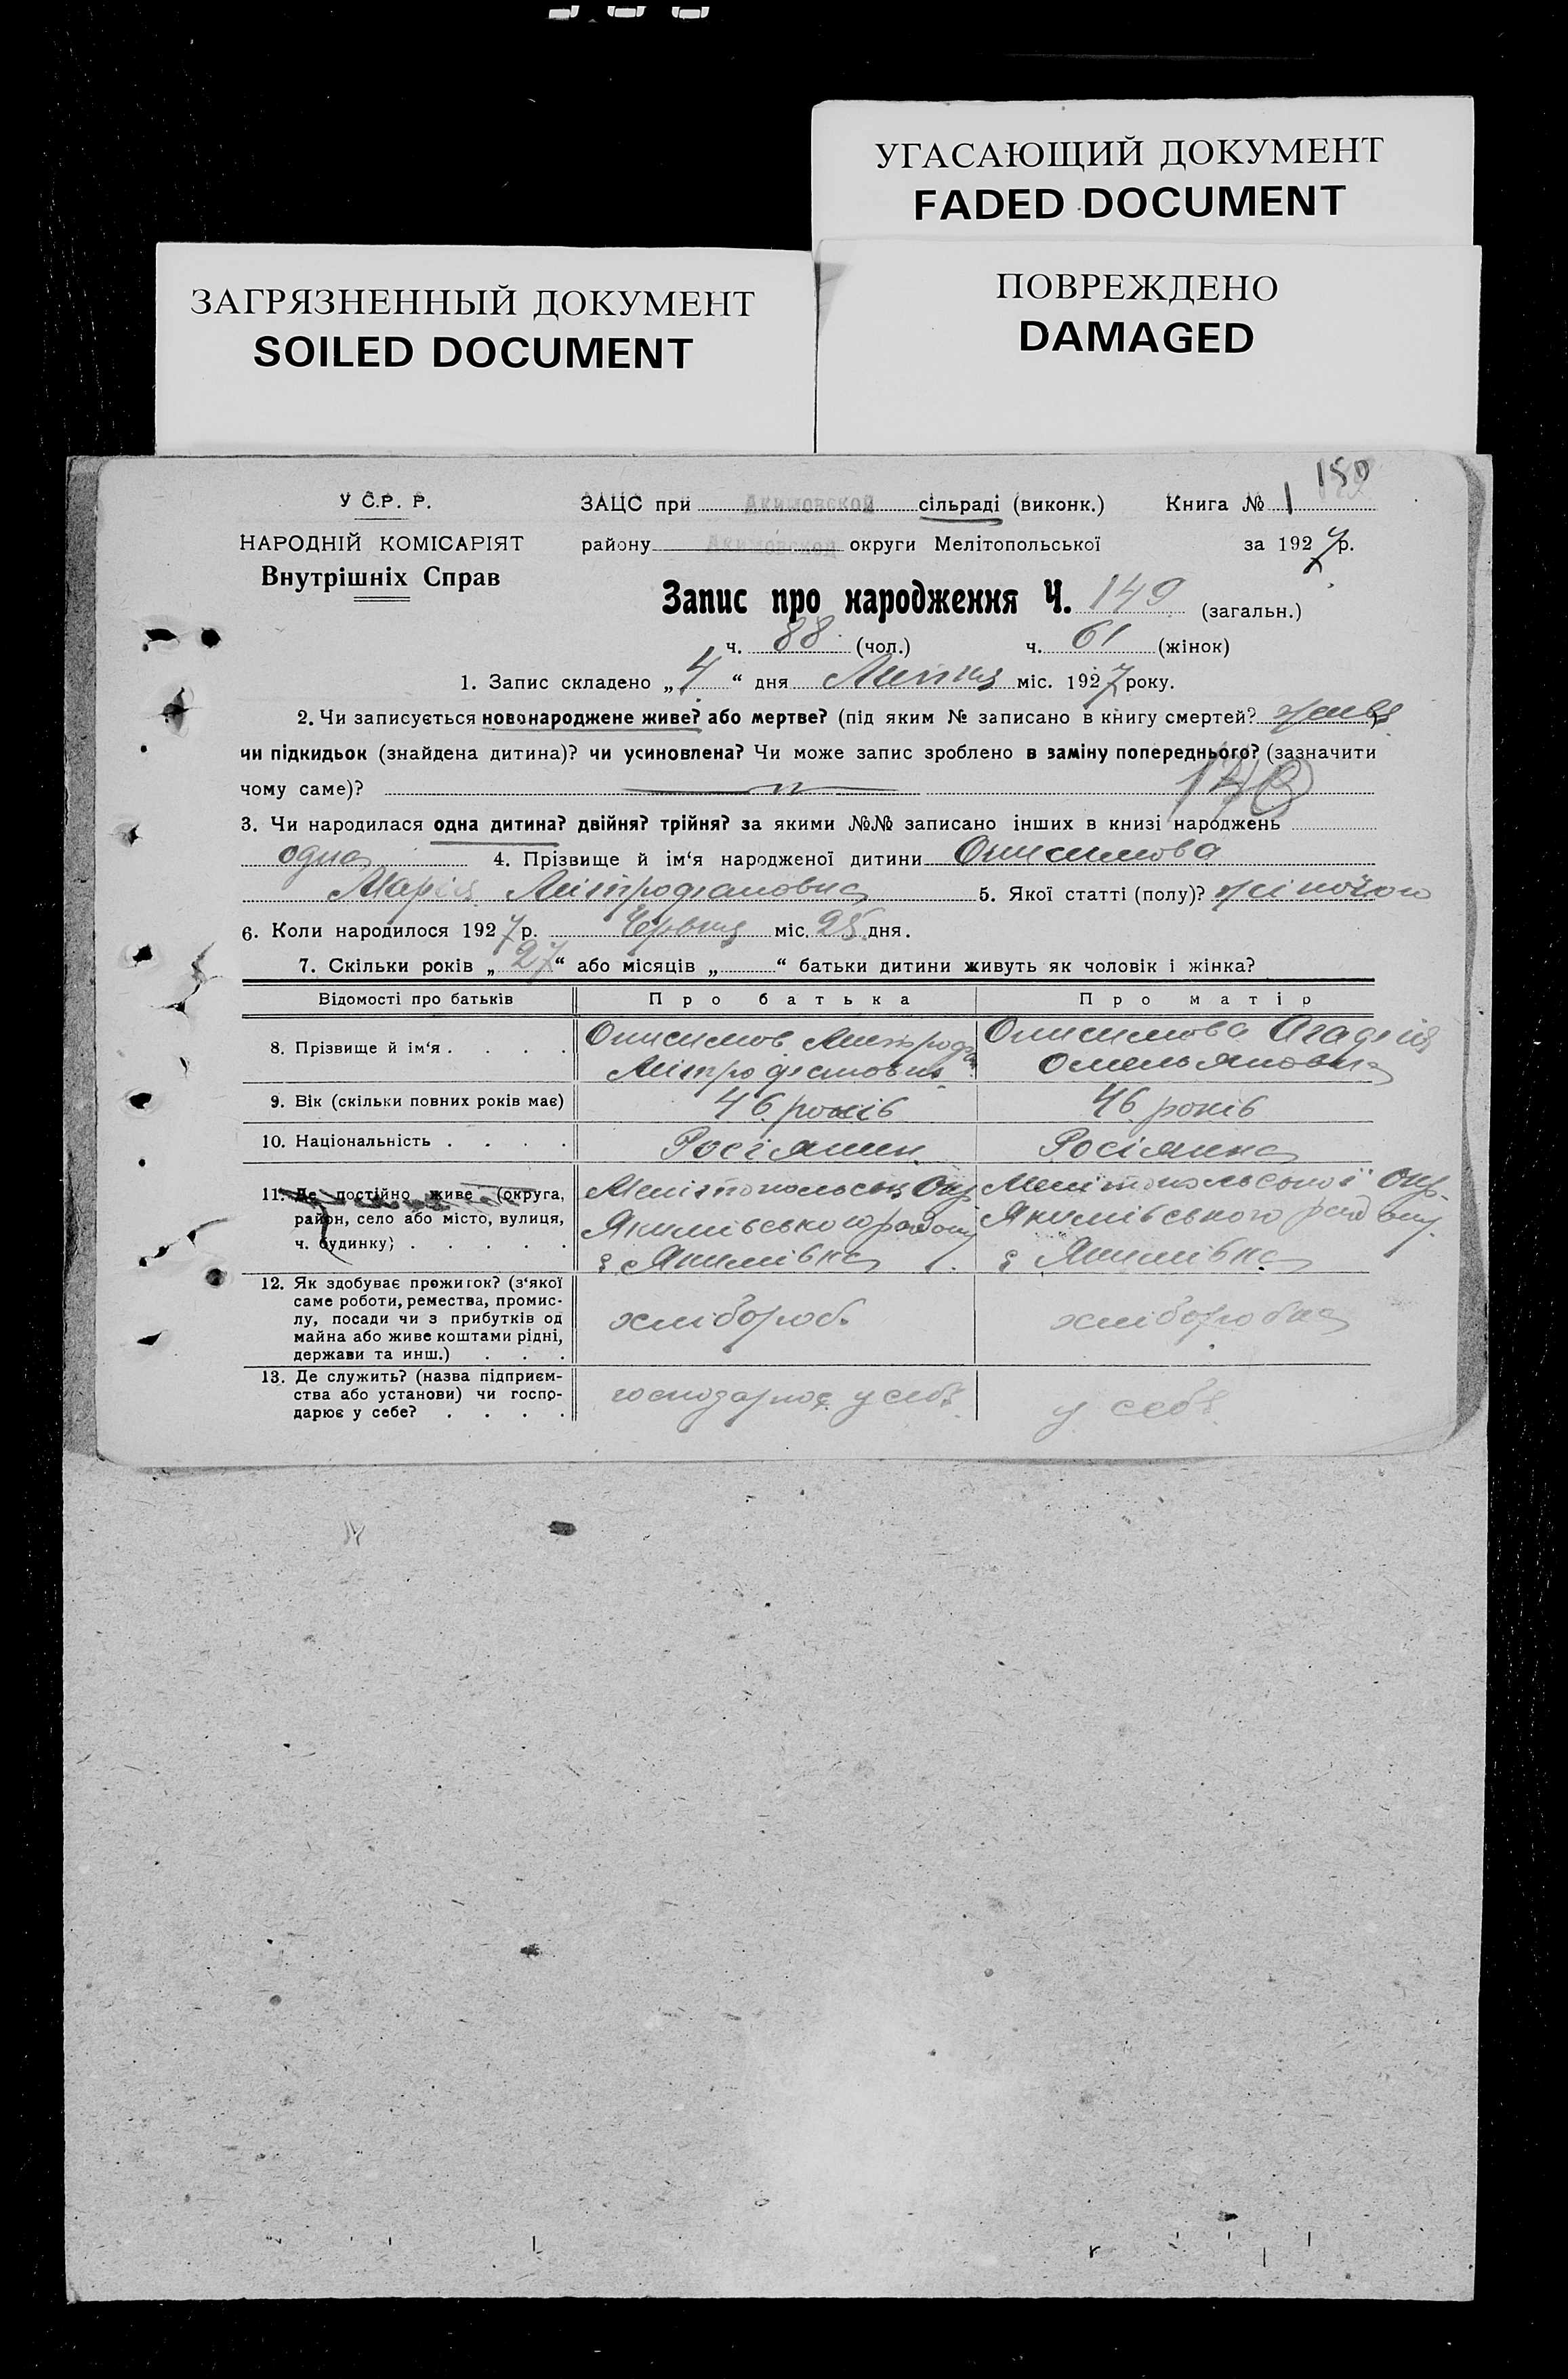 УГАСАЮЩИЙ ДОКУМЕНТ
FADED DOCUMENT
ЗАГРЯЗНЕННЫЙ ДОКУМЕНТ
SOILED DOCUMENT
ПОВРЕЖДЕНО
DAMAGED
150
У С.Р. Р.
НАРОДНІЙ КОМІСАРІЯТ
Внутрішніх Справ
ЗАЦС при Акимовской сільраді (виконк.) Книга № 1
району Акимовской округи Мелітопольської за 1927 р.
Запис про народження Ч. 149 (загальн.)
ч. 88 (чол.) ч. 61 (жінок)
1. Запис складено „4“ дня Липня міс. 1927 року.
2. Чи записується новонароджене живе? або мертве? (під яким № записано в книгу смертей? живе)
чи підкидьок (знайдена дитина)? чи усиновлена? Чи може запис зроблено в заміну попереднього? (зазначити
чому саме)?
3. Чи народилася одна дитина? двійня? трійня? за якими №№ записано інших в книзі народжень
одна 4. Прізвище й ім‘я народженої дитини Онисимова
Марія Мітрофановна 5. Якої статті (полу)? жіночою
6. Коли народилося 1927 р. Червня міс. 25 дня.
7. Скільки років „27“ або місяців „ “ батьки дитини живуть як чоловік і жінка?
Відомості про батьків Про батька Про матір
8. Прізвище й ім‘я . . . . Онисимов Митрофан Онисимова Агафія
Мітрофанович Омельяновна
9. Вік (скільки повних років має) 46 років 46 років
10. Національність . . . . Росіянин Росіянка
11. Де постійно живе (округа, Мелітопольськ Окр. Мелітопольської Окр.
район, село або місто, вулиця, Якимівського району Якимівського району
ч. будинку) . . . . . с. Якимівка с. Якимівка
12. Як здобуває прожиток? (з‘якої
саме роботи, ремества, промис-
лу, посади чи з прибутків од хлібороб. хліборобка
майна або живе коштами рідні,
держави та инш.) . . .
13. Де служить? (назва підприєм-
ства або установи) чи госпо- господарює у себе у себе
дарює у себе? . . . .